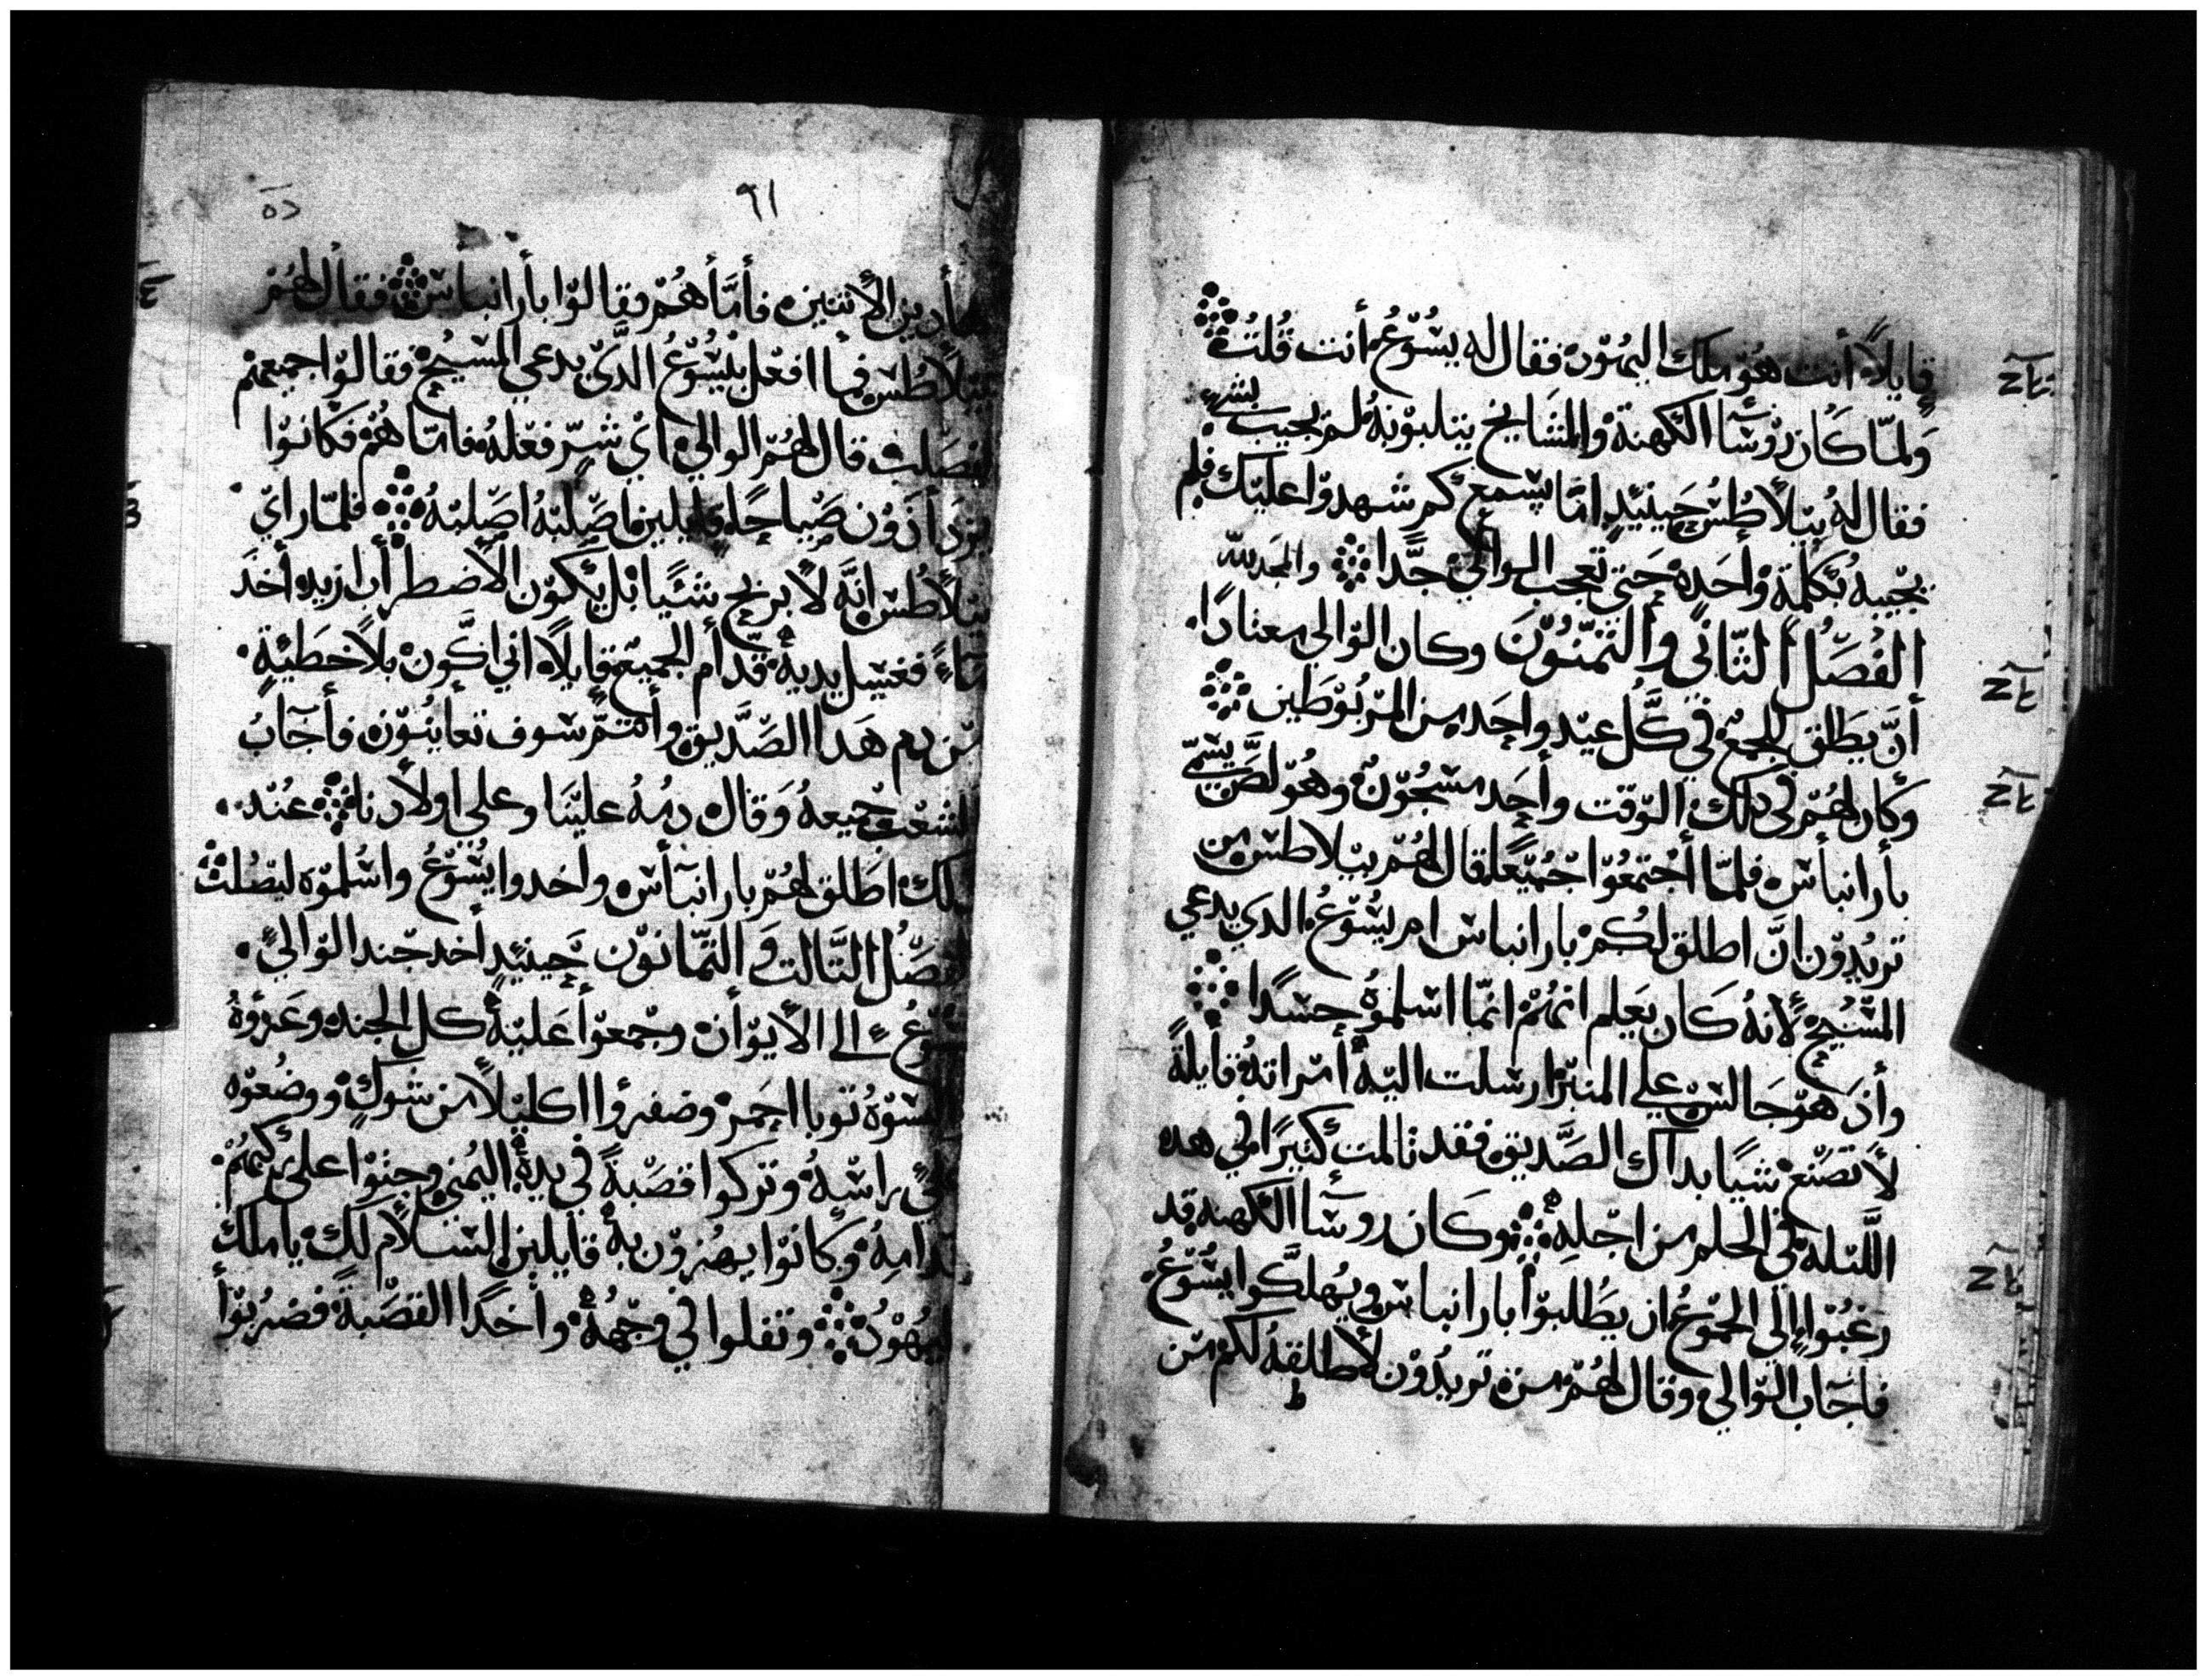 قايلاً أنت هُوّ ملك اليهُوّد فقال له يسُّوّعُ أنت قُلتُ
وَلمّا كَان روّسَآ الكهنة والمشَايخ يتلبوّنهُ لم يجيب بشيٍ
فقال لهُ بيلاطُسُ حِينيئذٍ امّا يسّمع كم شهدوّا عليّك فلم
يجيبهُ بكلمة وْاحَدهْ حَتي تعجب الوالي جدًّا والمجد لله
الفُصَلُ الثّاني والثمنّوُنَ وكان الوّالي معتادًا
أنَّ يطلق للجمع في كُلِّ عيّد واحِدٍ من المرّبُوّطين
وكَان لهُمّ في دلك الوّقت وأحِد مسّجُوّنٌ وهُوّ لصٌ يسّمّي
بأرانبأسّ فلمّا أجْتمعُوّا جُميّعًا قال لهُمّ بيلاطسّ من
تريُدوّن انَّ اطلق لكُمْ بارانباسّ ام يسُّوّعُ الدي يدعي
المسّيُحْ لأنهُ كَان يَعلم انهُمْ انّمّا اسّلموُهْ حِسّدًا
وأدَ هوّ جَالسّ علي المنبرّ ارسّلت اليّهِ أمرّاتهُ قأيلةً
لأ تصّنعْ شيًا بداك الصّديق فقد تالمت كثيرًا في هده
اللّيله في الحلم من اجّلهِ وكَان روسَآ الكهنه قد
رَغبُوّا إلي الجمُوّع ان يَطلبوّا بارانباسّ ويهلكّوا يسّوّعُ
فاجَاب الوّالي وقال لهُمّ من تريُدوّن لأطلقهُ لكم مّن
٩١
هأدين الأثنين فأمّا هُمّ فقالوّا بأرانبأسّ فقال لهُمّ
بيلأطُسّ فما افعل بيسُّوّعُ الدَّيّ يدعي المسّيُحْ فقالوّا جميعهمْ
ليصَلب قال لهُمّ الوالي ايّ شرّ فعلهُ فامّا همْ فكانوّا
يزدَأدَوُن صَّياحًا وقايلين اصّلبهُ اصّلبهُ فلمّا رايّ
بيلأطُسّ انهَّ لأ يربح شئًيا بل يكوّن الأضطرأب ازيد أخدَ
مَاءً فغسّل يديهِ قدّأم الجميع قايلاً اني اكَون بلاْ خطيَئةٍ
مّن دم هَدا الصّديق وأنتمّ سّوف تعاينُوّن فأجَآبُ
الشعب جميعهُ وَقال دمُهُ عليّنا وعلي اولأدنا عنُد
دلك اطلق لهُمّ بارانبآسّ واخدوا يسُّوّعُ واسُّلموّه ليصُلبْ
الفصّلُ الثّالت وَ التمّانوّن حِينيئدٍ أخد جند الوّاليّ
يسّوُعْ الي الأيوّأن وجْمعوّا عَليّهِ كل الجند وعَروّهُ
والبسّوّهُ توبا احمَرْ وضفروُا اكليّلاً من شُوكٍ ووضُعوّه
عليّ راسّهُ وتركوا قصّبةً في يدهِ اليُمنيّ وجتوّا علي ركبهُمْ
قدامهُ وكانوّا يهزوّن بهْ قايلين السّلأم لك ياملك
اليهُوّدُ وتفلوا في وجّههُ وأخدًا القصّبةً فضربُوّا